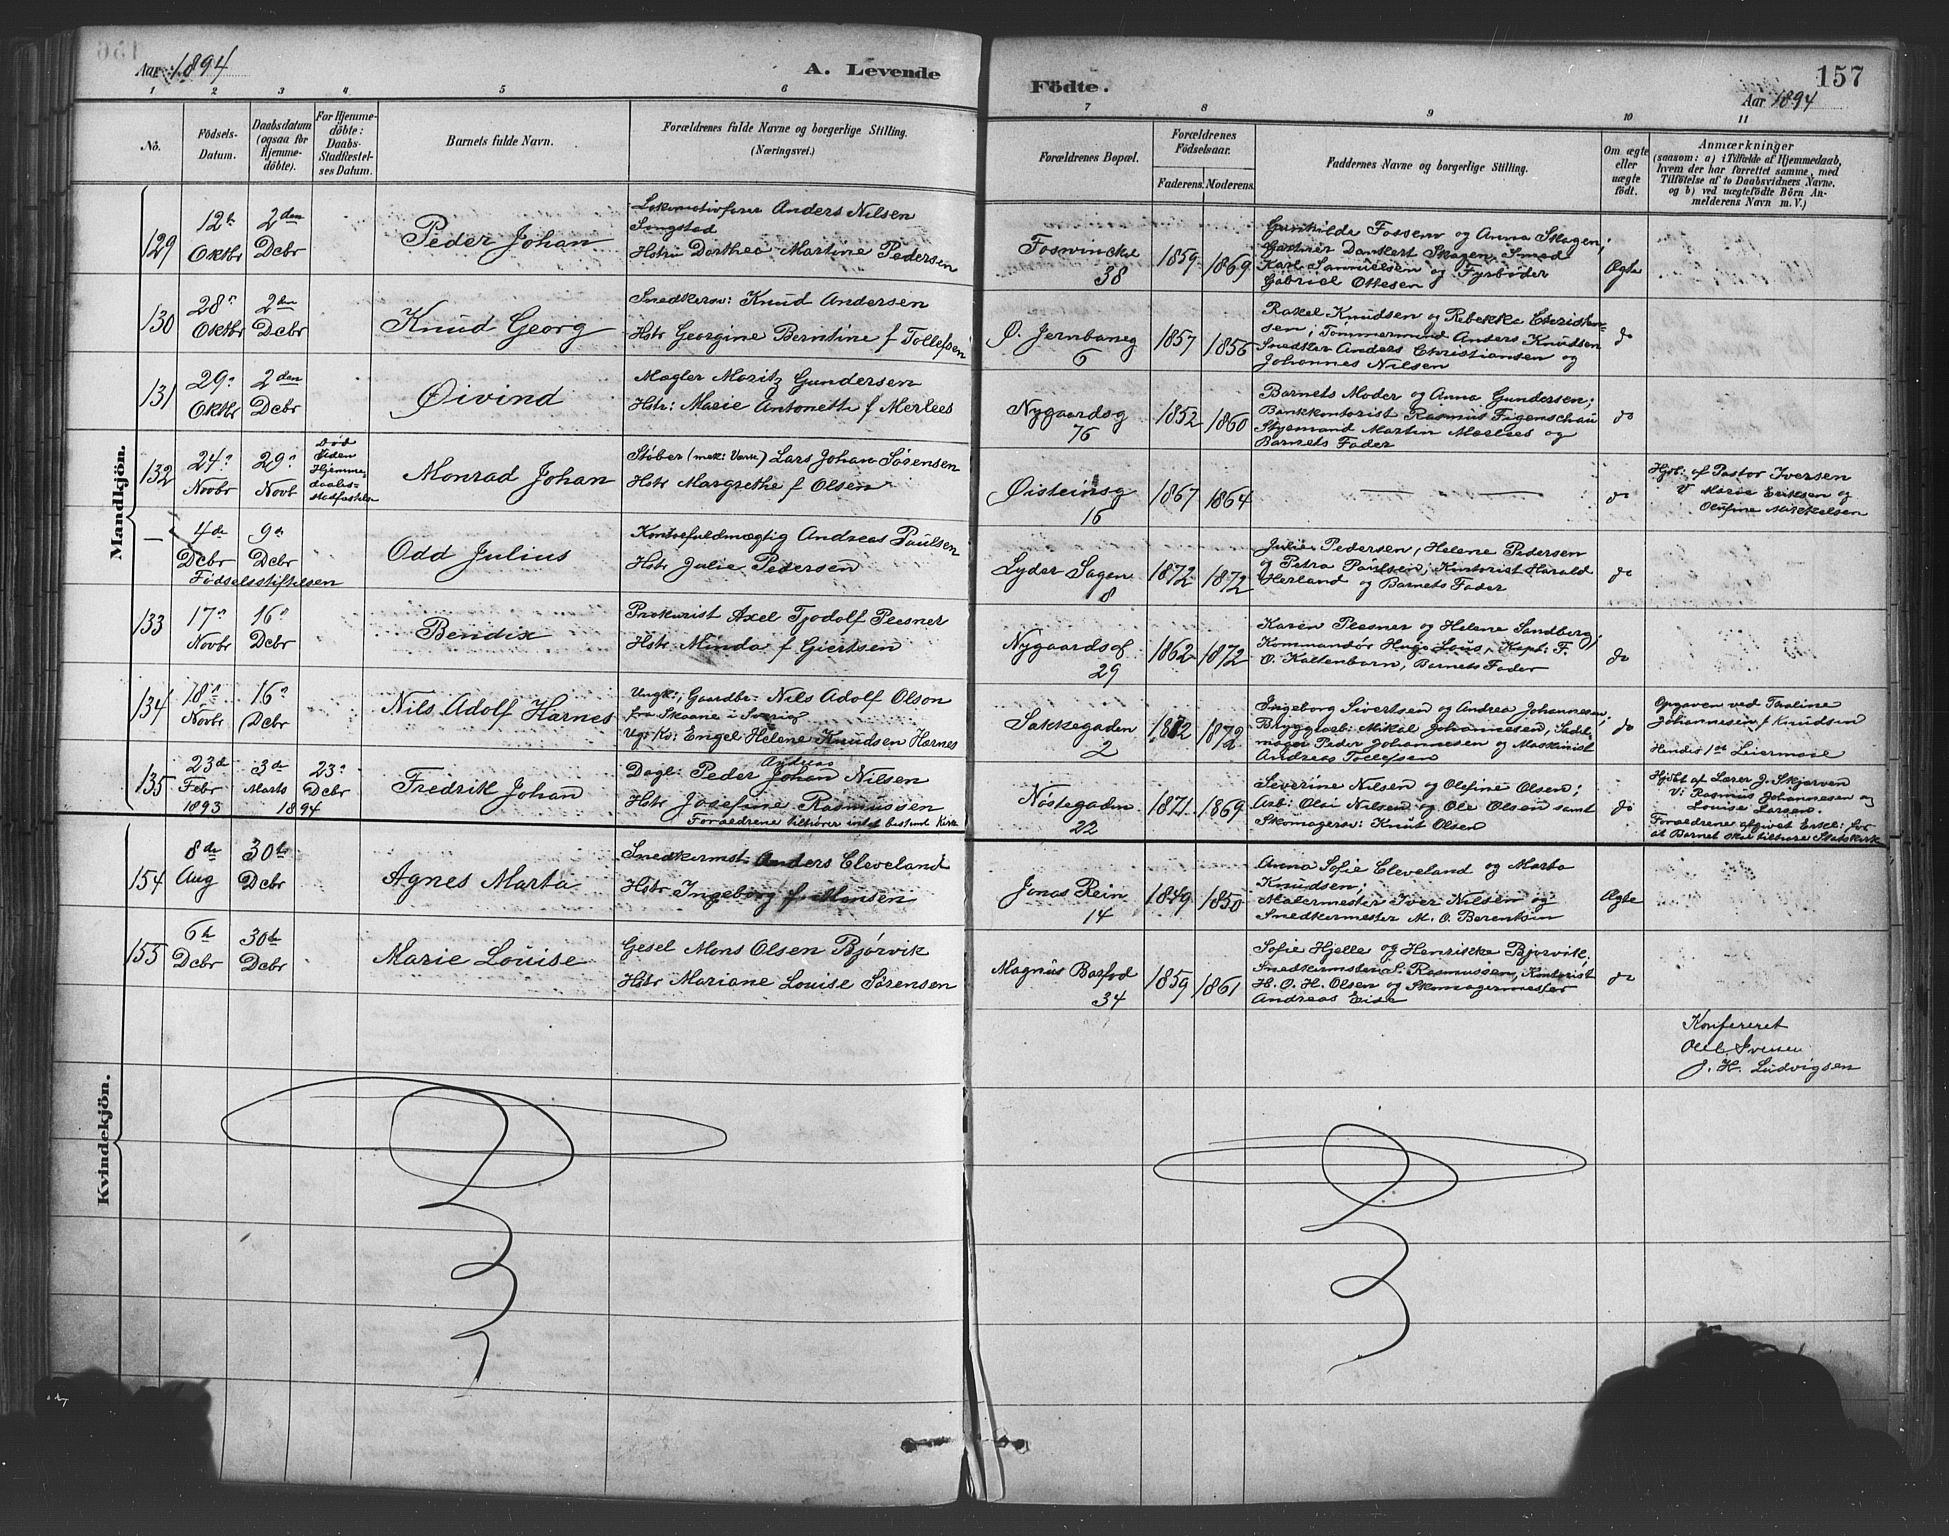 Aar 1894
A. Levende
Födte.
157
Aar 1894
1 2 3 4 5 6 7 8 9 10 11
No.
Födsels-
Datum.
Daabsdatum
(ogsaa for
Hjemme-
döbte).
For Hjemme-
döbte:
Daabs-
Stadfæstel-
ses Datum.
Barnets fulde Navn.
Forældrenes fulde Navne og borgerlige Stilling.
(Næringsvei.)
Forældrenes Bopæl.
Forældrenes
Födselsaar.
Faderens. Moderens.
Faddernes Navne og borgerlige Stilling.
Om ægte
eller
uægte
födt.
Anmærkninger
(saasom: a) i Tilfælde af Hjemmedaab,
hvem der har forrettet samme, med
Tilföielse af to Daabsvidners Navne,
og b) ved uægtefödte Börn An-
melderens Navn m. V.)
Mandkjön.
129
12te
Oktbr
2den
Dcbr
Peder Johan
Lokomotivfører Anders Nilsen
Singstad
Hstru Dorthea Martine Pedersen
Fosvinckel
38
1859 1869
Gunhilde Fossen og Anna Skagen;
Gartner Dankert Skagen, Smed
Karl Samuelsen og Fyrbøder
Gabriel Ottesen
Ægte
130
28n
Oktbr
2den
Dcbr
Knud Georg
Snedkersv: Knud Andersen
Hstr Georgine Berntine f Tollefsen
Ø. Jernbaneg
6
1857 1856
Rakel Knudsen og Rebekka Christen-
sen; Tømmermand Anders Knudsen
Snedker Anders Christiansen og
Johannes Nilsen
do
131
29n
Oktbr
2den
Dcbr
Øivind
Mægler Moritz Gundersen
Hstr: Marie Antonette f Merlees
Nygaardsg
76
1852 1860
Barnets Moder og Anna Gundersen;
Bankkontorist Rasmus Figenschau
Styrmand Martin Merlees og
Barnets Fader
do
132
24n
Novbr
29n
Novb
Død
siden
Hjemme-
daabs-
stadfæstelse
Monrad Johan
Støber (mek: Værk) Lars Johan Sørensen
Hstr Margrethe f Olsen
Øisteinsg
16
1867 1864
— — —
do
Hjdb: af Pastor Iversen
V Marie Eriksen og
Olufine Mikkelsen
—
4de
Dcbr
9de
Dcbr
Fødselsstiftelsen
Odd Julius
Kontorfuldmægtig Andreas Paulsen
Hstr Julie Pedersen
Lyder Sagen
8
1872 1872
Julie Pedersen, Helene Pedersen
og Petra Paulsen, Kontorist Harald
Herland og Barnets Fader
do
133
17n
Novbr
16n
Dcbr
Bendix
Prokurist Axel Tjodolf Plesner
Hstr Minda f Giertsen
Nygaardsg
29
1862 1872
Karen Plesner og Helene Sandberg;
Kommandør Hugo Lous, Kapt: F.
O. Kaltenborn, Barnets Fader
do
134
18n
Novbr
16n
Dcbr
Nils Adolf Harnes
Ungk:, Gaardbr: Nils Adolf Olson
fra Skaane i Sverig
Ug: Kv: Engel Helene Knudsen Harnes
Sakkegaden
2
1872 1872
Ingeborg Sivertsen og Andrea Johannesen;
Bryggarb: Mikal Johannesen, Sadel-
mager Peder Johannesen og Maskinist
Andreas Tollefsen
do
Opgaven ved Thaline
Johannesen f Knudsen
Hendes 1ste Leiermaal
135
23de
Febr
1893
3de
Marts
1894
23n
Dcbr
Fredrik Johan
Andreas
Dagl: Peder Johan Nilsen
Hstr Josefine Rasmussen
Forældrene tilhører intet bestemt Kirke
Nøstegaden
22
1871 1869
Severine Nilsen og Olefine Olsen;
Arb: Olai Nilsen og Ole Olsen samt
Skomagersv: Knut Olsen
do
Hjdbt af Lærer J. Skjerven
V: Rasmus Johannesen og
Louise Larsen.
Forældrene afgivet Erkl: for
at Barnet skal tilhøre Statskirk
Kvindekjön.
154
8de
Aug
30te
Dcbr
Agnes Marta
Snedkermst: Anders Cleveland
Hstr Ingeborg f. Monsen
Jonas Rein
14
1849 1850
Anna Sofie Cleveland og Marta
Knudsen;
Malermester Iver Nilsen og
Snedkermester M. O. Berentsen
Ægte
155
6te
Dcbr
30te
Dcbr
Marie Louise
Gesel Mons Olsen Bjørvik
Hstr Mariane Louise Sørensen
Magnus Barfod
34
1859 1861
Sofie Hjelle og Henrikke Bjørvik,
Snedkermster S. Rasmussen, Kontorist
H. O. H. Olsen og Skomagermester
Andreas Eide
do
Konfereret
J. H. Ludvigsen